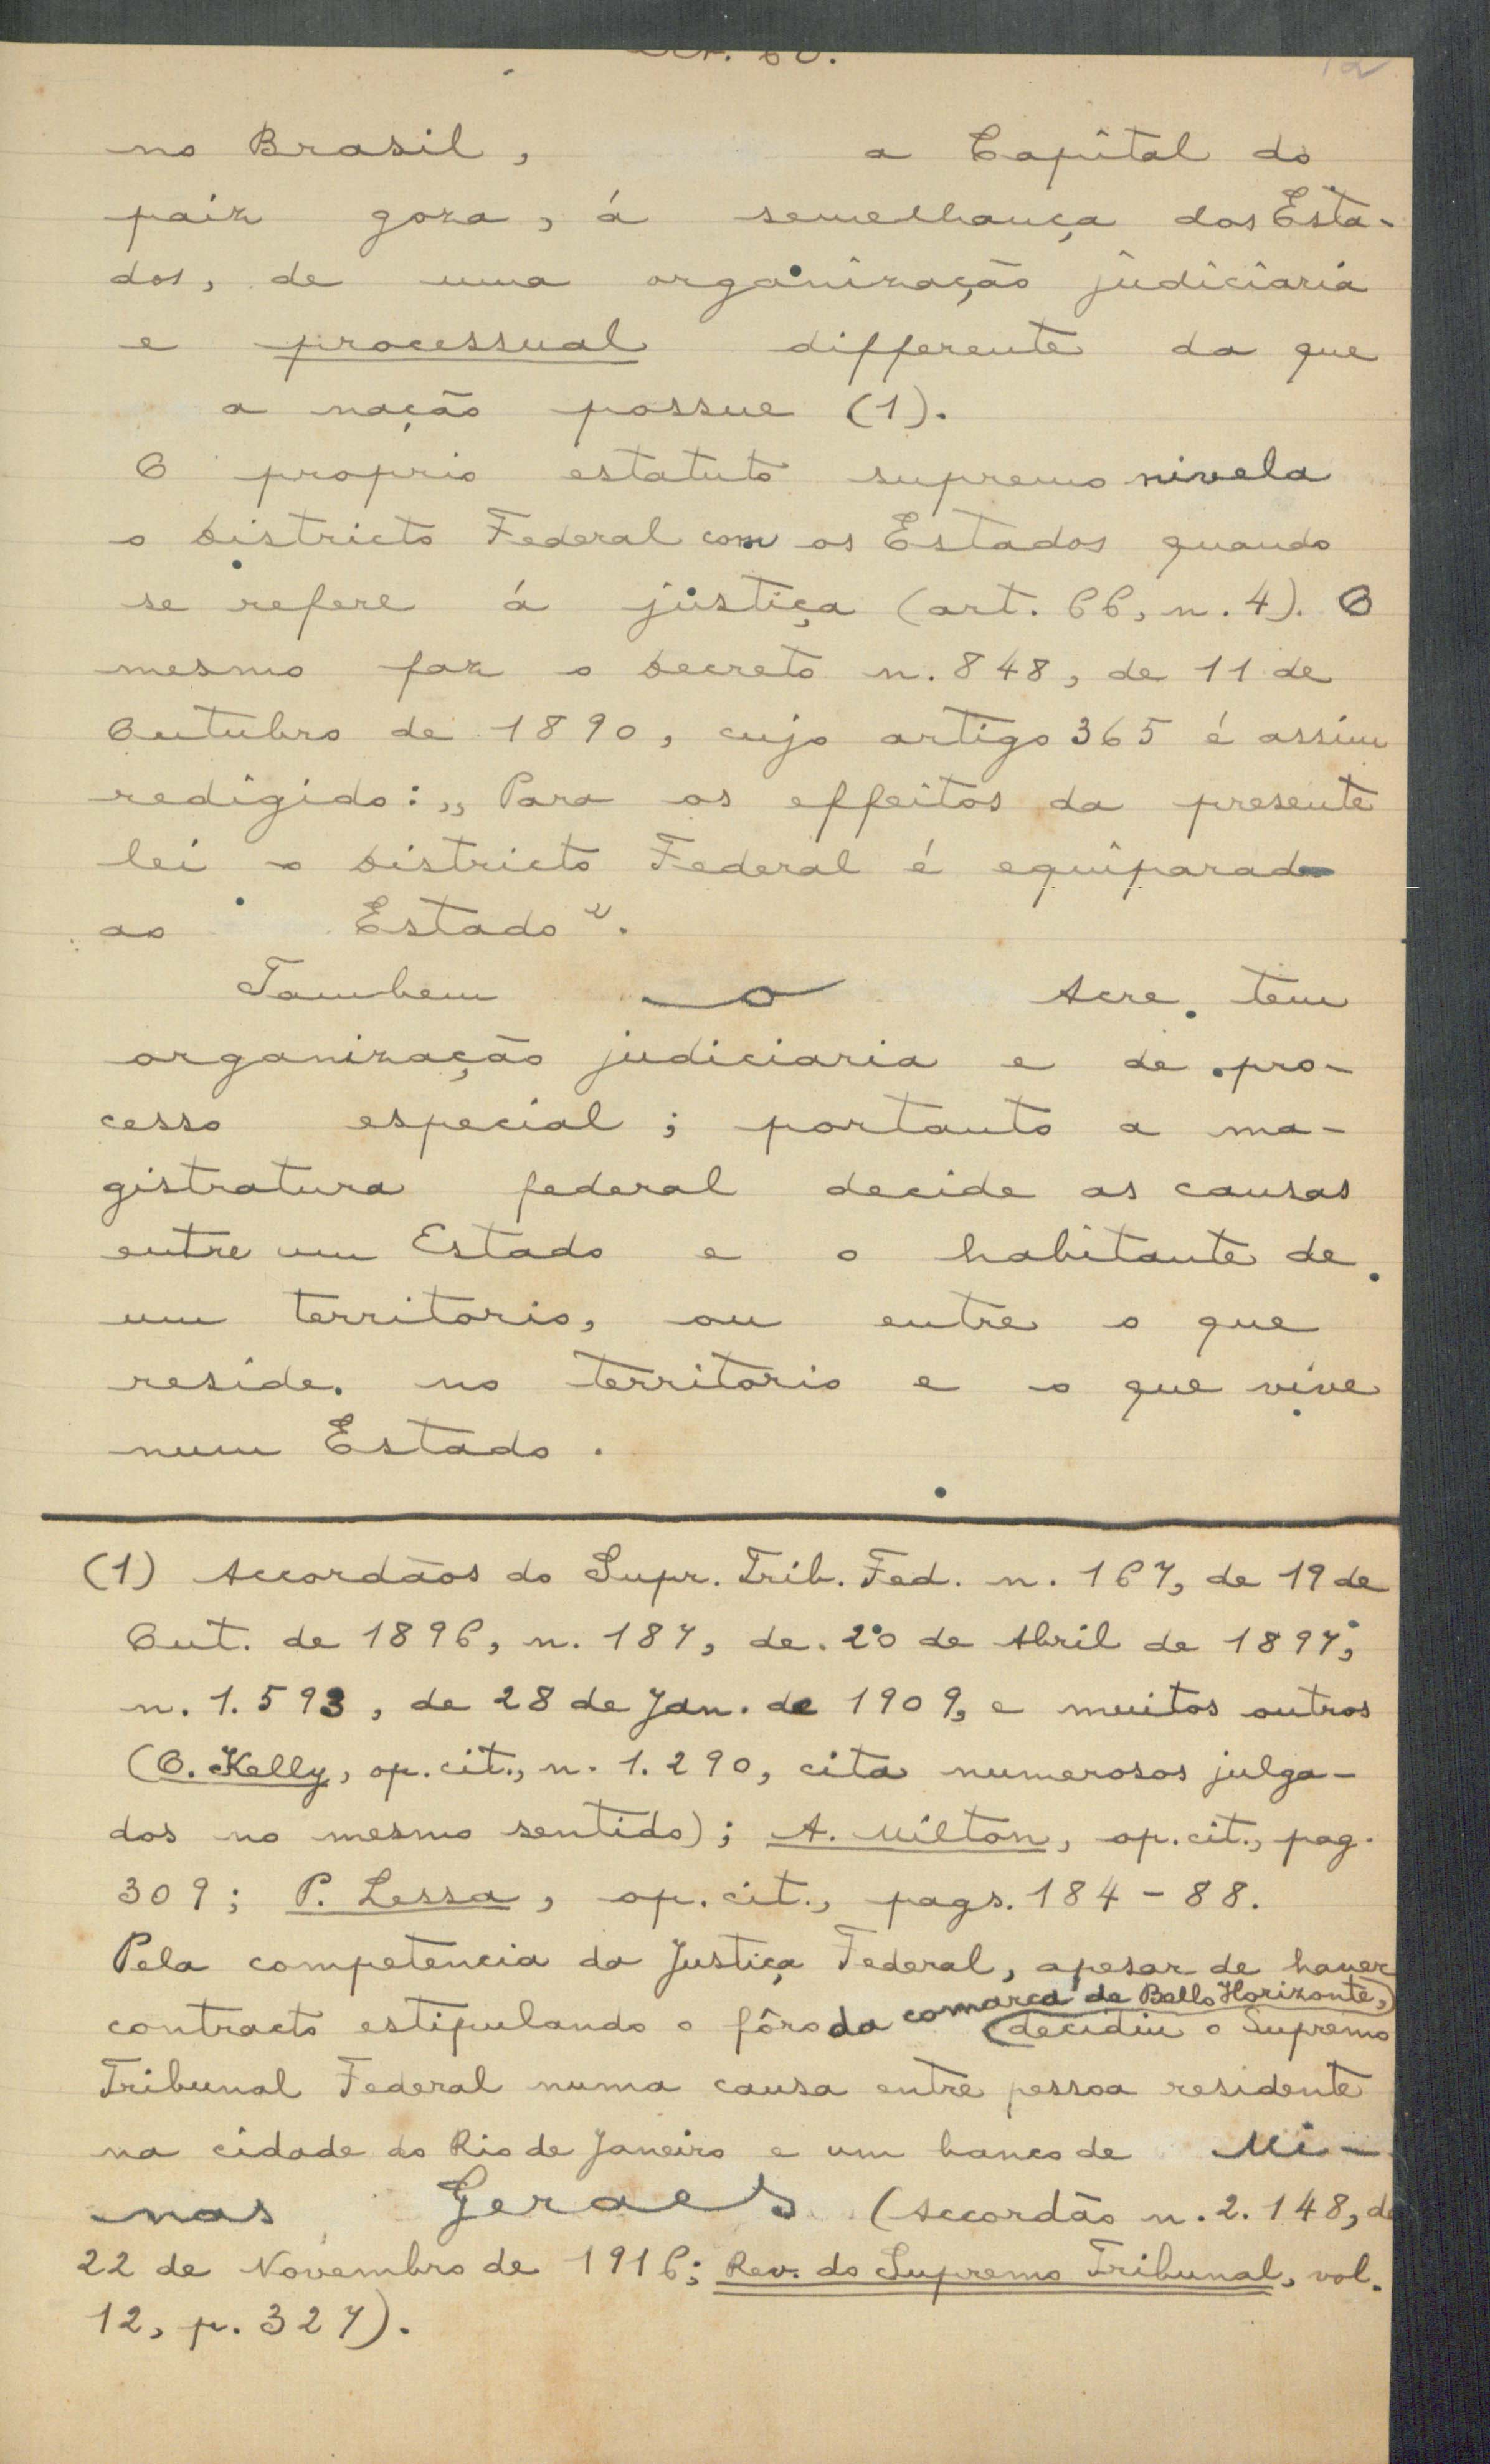 Art. 60.
12
no Brasil, a Capital do
paiz goza, á semelhança dos Esta-
dos, de uma organização judiciaria
e processual differente da que
a nação possue (1).
O proprio estatuto supremo nivela
o Districto Federal com os Estados quando
se refere á justiça (art. 66, n. 4). O
mesmo faz o Decreto n. 848, de 11 de
Outubro de 1890, cujo artigo 365 é assim
redigido: „ Para os effeitos da presente
lei o Districto Federal é equiparado
ao Estado".
Tambem o Acre tem
organização judiciaria e de pro-
cesso especial; portanto a ma-
gistratura federal decide as causas
entre um Estado e o habitante de
um territorio, ou entre o que
reside no territorio e o que vive
num Estado.
(1) Accordãos do Supr. Trib. Fed. n. 167, de 19 de
Out. de 1896, n. 187, de 20 de Abril de 1897;
n. 1.593, de 28 de Jan. de 1909, e muitos outros
(O. Kelly, op. cit., n. 1.290, cita numerosos julga-
dos no mesmo sentido); A. Milton, op. cit., pag.
309; P. Lessa, op. cit., pags. 184-88.
Pela competencia da Justiça Federal, apesar de haver
contracto estipulando o fôro da comarca de Bello Horizonte, decidiu o Supremo
Tribunal Federal numa causa entre pessoa residente
na cidade do Rio de Janeiro e um banco de Mi-
nas Geraes (Accordão n. 2.148, de
22 de Novembro de 1916; Rev. do Supremo Tribunal, vol.
12, p. 327).